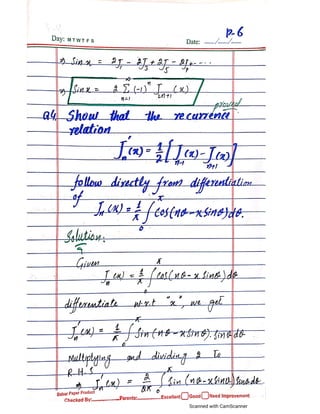 P-6
Day: M T W T F S Date: __/__/__
⇒ Sin x = 2J₁ - 2J₃ + 2J₅ - 2J₇ + - - -
⇒ Sin x = 2 Σ (-1)ⁿ J (x)
∞
n=1
2n+1
proved
Q4 Show that the recurrence
relation
J'ₙ(x) = 1/2 [ Jₙ₋₁(x) - Jₙ₊₁(x) ]
follow directly from differentiation
of
Jₙ(x) = 1/π ∫₀^π cos(nθ - x Sinθ) dθ.
Solution:
Given
Jₙ(x) = 1/π ∫₀^π cos(nθ - x Sinθ) dθ
differentiate w.r.t "x", we get
J'ₙ(x) = 1/π ∫₀^π Sin(nθ - x Sinθ). Sinθ dθ
Multiplying and dividing 2 to
R.H.S
⇒ J'ₙ(x) = 2/2π ∫₀^π Sin(nθ - x Sinθ) Sinθ dθ
Paper Product
Checked By: Parents: Excellent Good Need Improvement
Scanned with CamScanner